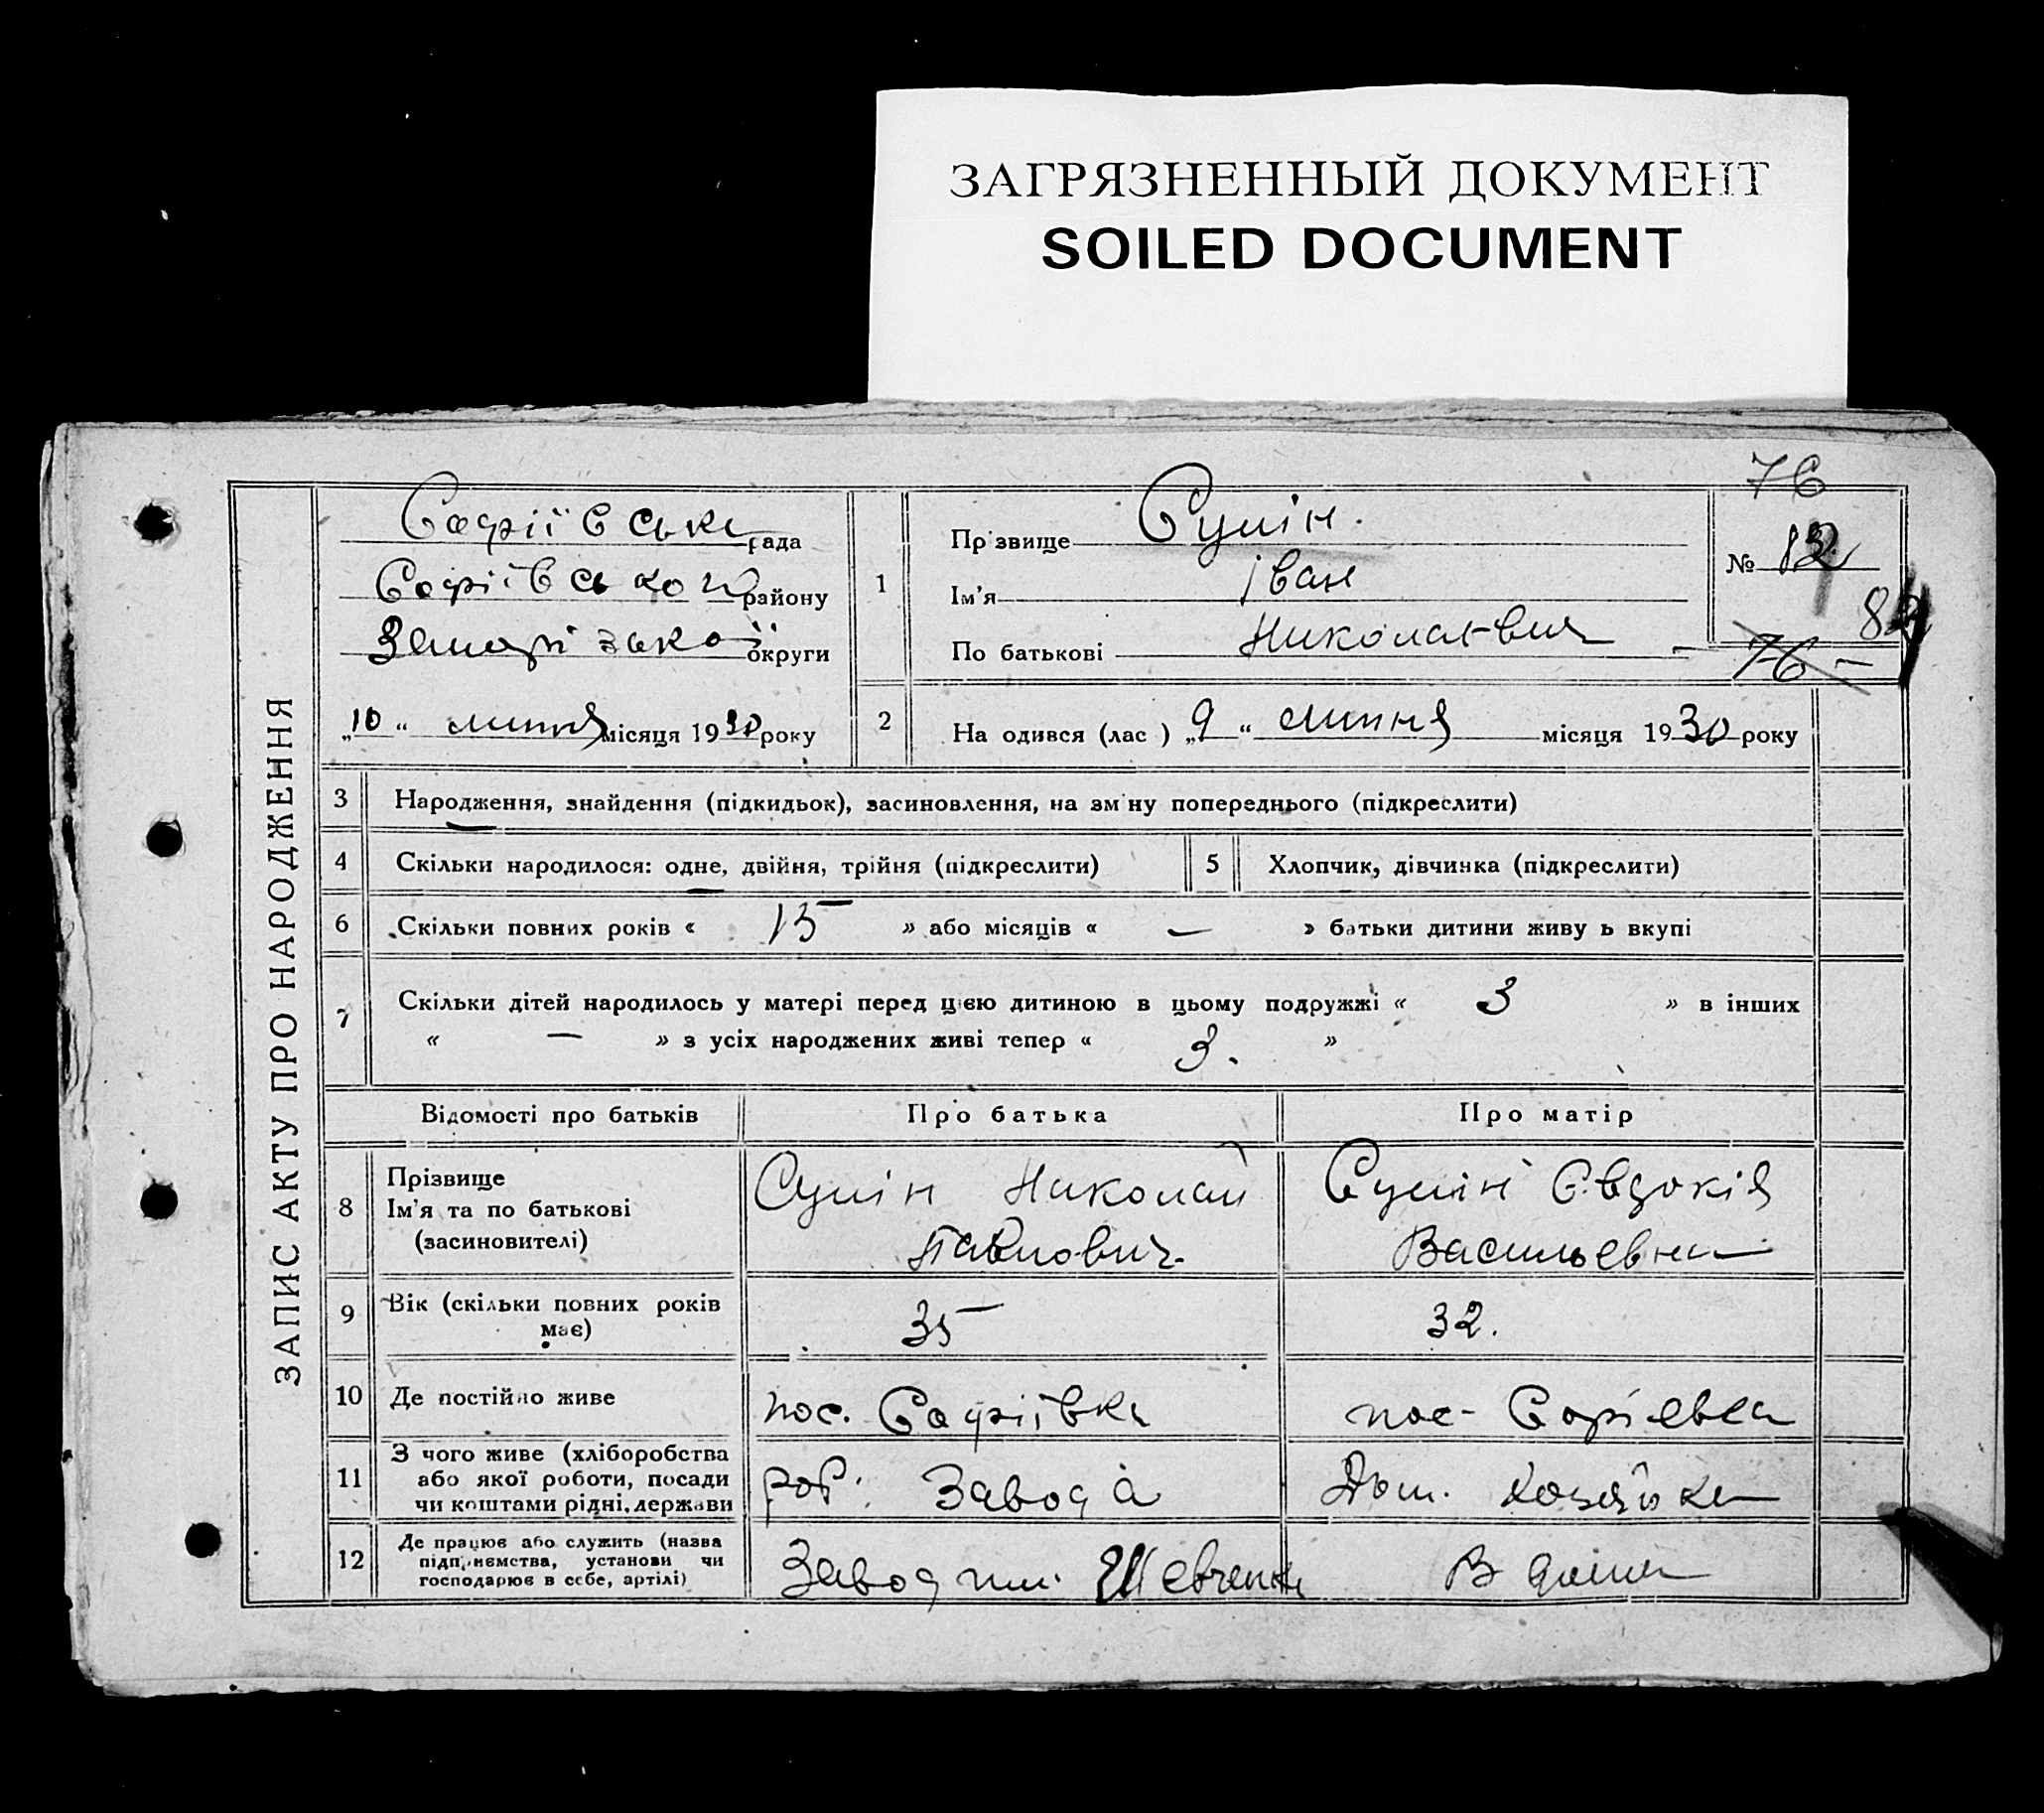 ЗАГРЯЗНЕННЫЙ ДОКУМЕНТ
SOILED DOCUMENT
ЗАПИС АКТУ ПРО НАРОДЖЕННЯ
76
Софіївська рада
Софіївського району
Запорізької округи
"10" липня місяця 1930 року
1
Прізвище Сумін.
Ім'я Іван
По батькові Николаевич
№ 13
76
2 На одився (лас ) "9" липня місяця 1930 року
3 Народження, знайдення (підкидьок), засиновлення, на зміну попереднього (підкреслити)
4 Скільки народилося: одне, двійня, трійня (підкреслити)
5 Хлопчик, дівчинка (підкреслити)
6 Скільки повних років « 15 » або місяців « — » батьки дитини живу ь вкупі
7 Скільки дітей народилось у матері перед цією дитиною в цьому подружжі « 3 » в інших
« — » з усіх народжених живі тепер « 3. »
Відомості про батьків Про батька Про матір
8 Прізвище
Ім'я та по батькові
(засиновителі)
Сумін Николай
Павлович
Сумін Євдокія
Васильевна
9 Вік (скільки повних років
має)
35
32.
10 Де постійно живе
пос. Софіївка
пос. Софіевка
11 З чого живе (хліборобства
або якої роботи, посади
чи коштами рідні, держави
роб. Завода
Дом. хозяйка
12 Де працює або служить (назва
підприємства, установи чи
господарює в себе, артілі)
Завод им. Шевченк
В дома